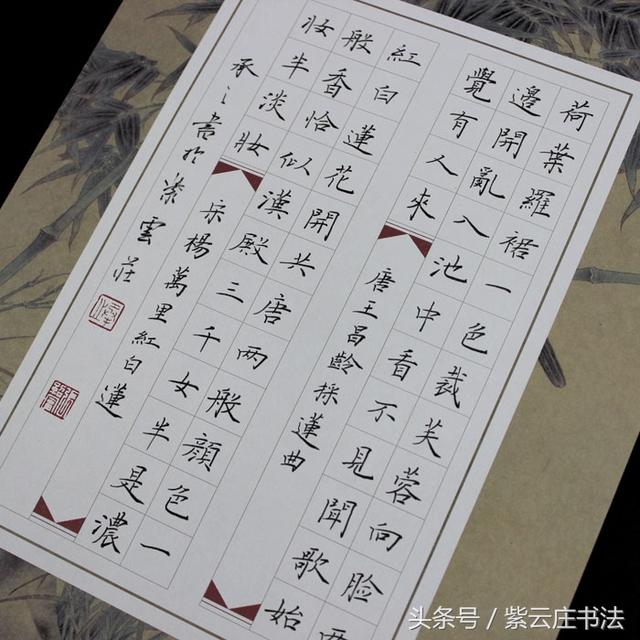 荷葉羅裙一色裁芙蓉向臉两
邊開亂入池中看不見聞歌始
覺有人來
唐王昌齡採蓮曲
紅白蓮花開共唐两般顏色一
般香恰似漢殿三千女半是濃
妝半淡妝
宋楊萬里紅白蓮
承之書於紫雲莊
头条号 / 紫云庄书法